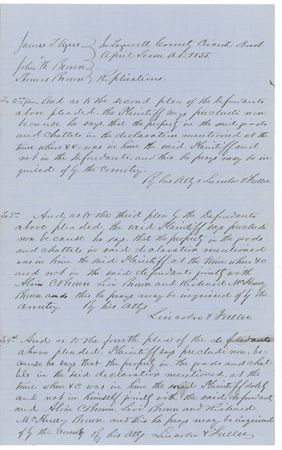 James T. Ayers } In Tazewell County Circuit Court
} April Term A.D. 1855.
John W. Brown
Thomas Brown } Replications.
And as to the second plea of the Defendants
above pleaded, the Plaintiff says precludi non
because he says that the property in the said goods
and chattels in the declaration mentioned at the
time when &c. was in him the said Plaintiff and
not in the Defendants, and this he prays may be in-
quired of by the country.
By his Attys Lincoln & Fuller.
And, as to the third plea by the Defendants
above pleaded, the said Plaintiff says precludi
non, because he says that the property in the goods
and chattels in said declaration mentioned
was in him the said Plaintiff at the time when &c
and not in the said defendants jointly with
Brown Levi Brown and Richard McHenry
Brown and this he prays may be inquired of by the
country. By his Atty
Lincoln & Fuller
And as to the fourth plea of the defendants
above pleaded, Plaintiff says precludi non, be-
cause he says that the property in the goods and chat-
tels in the said declaration mentioned at the
time when &c was in him the said Plaintiff solely
and not in himself jointly with the said defendants
and Brown, Levi Brown and Richard
McHenry Brown, and this he prays may be inquired
of by the country By his Atty Lincoln & Fuller